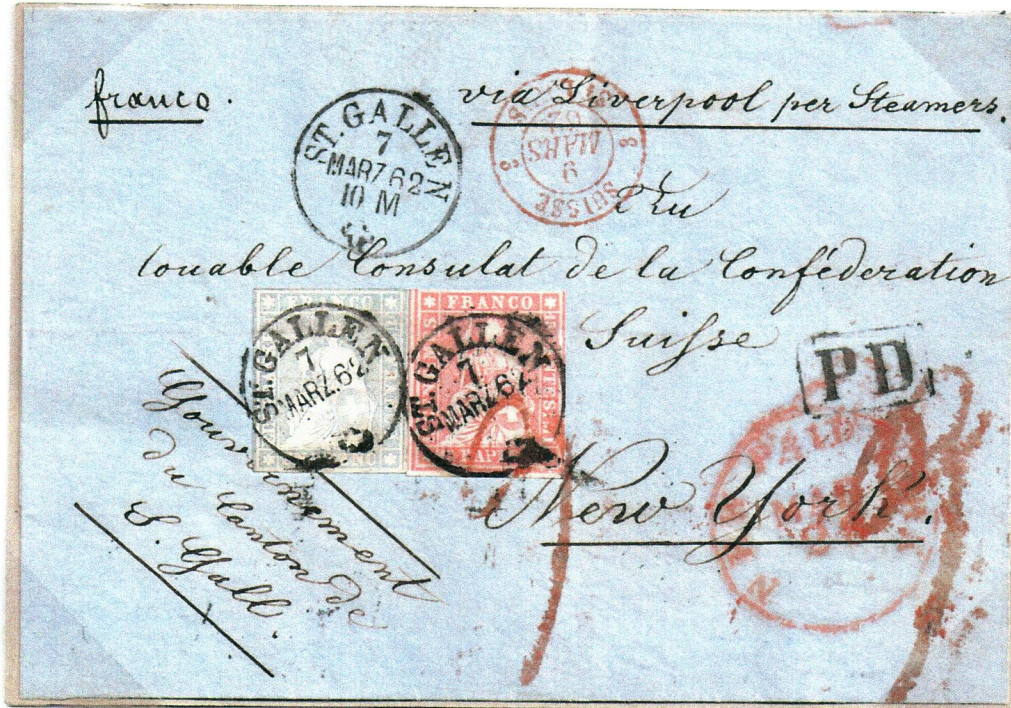 franco.
via Liverpool per Steamers.
ST. GALLEN
7
MARZ 62
10 M
SUISSE
9
MARS
62
8 8
Au
louable Consulat de la Conféderation
Suisse
New York.
FRANCO
FRANCO
ST. GALLEN
7
MARZ 62
ST. GALLEN
7
MARZ 62
PD
Gouvernement
du Canton de
S. Gall.